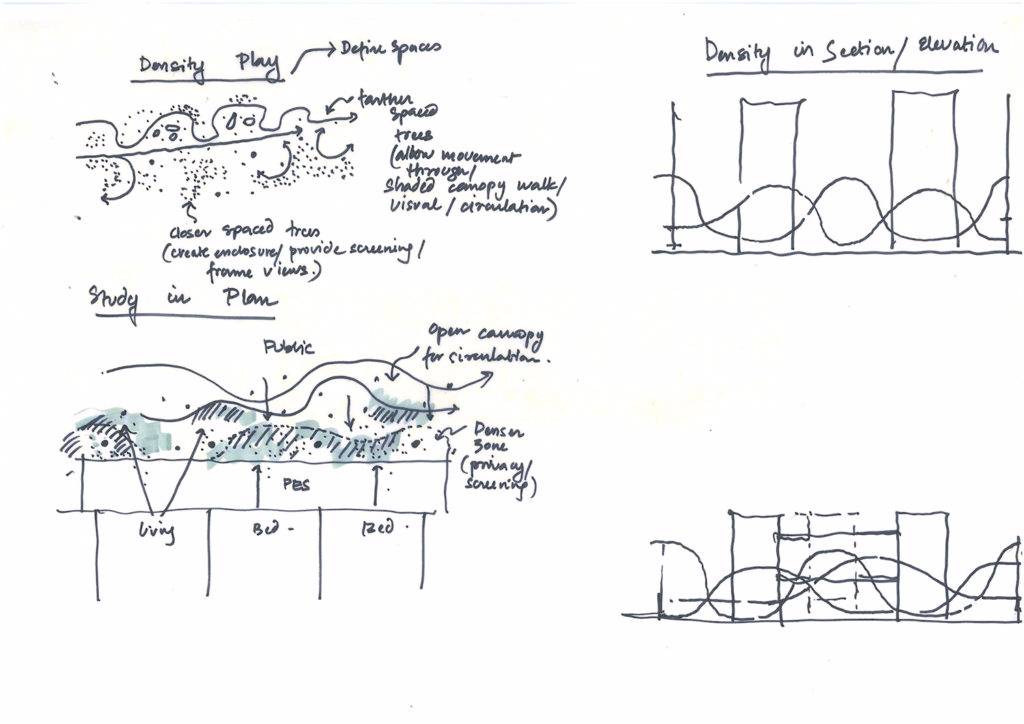 Density Play
Define spaces
farther
spaced
trees
(allow movement
through/
shaded canopy walk/
visual / circulation)
closer spaced trees
(create enclosure/ provide screening/
frame views.)
Study in Plan
Public
Open canopy
for circulation.
Denser
zone
(privacy/
screening)
PES
Living
Bed -
Bed -
Density in Section/ Elevation